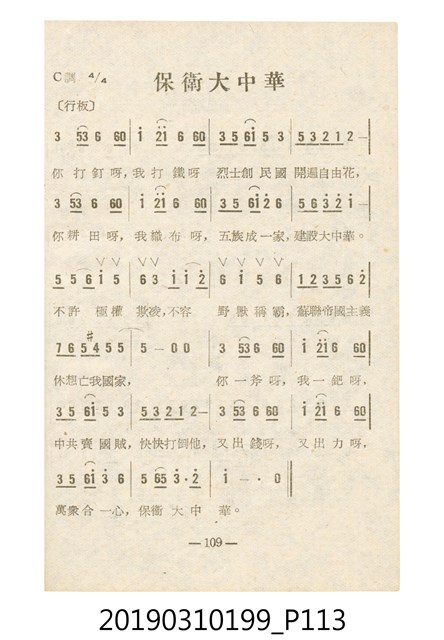 C調 4/4 保衛大中華
〔行板〕
3 53 6 60 | i 2i 6 60 | 3 5 6i 5 3 | 5 3 2 1 2 — |
你 打 釘 呀, 我 打 鐵 呀 烈士創 民 國 開遍自由花,
3 53 6 60 | i 2i 6 60 | 3 5 6i 2 6 | 5 6 3 2 i — |
你 耕 田 呀, 我 織 布 呀, 五族成一家, 建設大中華。
V V V V V V V V
5 5 6 i 5 | 6 3 i i 2 | 6 i 5 6 | 1 2 3 5 6 2 |
不許 極權 欺凌, 不容 野 獸 稱 霸, 蘇聯帝國主義
7 6 5 #4 5 5 | 5 – 0 0 | 3 53 6 60 | i 2i 6 60 |
休想亡我國家, 你 一 斧 呀, 我 一 鈀 呀,
3 5 6i 5 3 | 5 3 2 1 2 – | 3 53 6 60 | i 2i 6 60 |
中共 賣 國賊, 快快打倒他, 又 出 錢 呀, 又 出 力 呀.
3 5 6i 3 6 | 5 65 3 · 2 | i – · 0 |
萬衆合一心, 保衛 大 中 華。
— 109 —
20190310199_P113